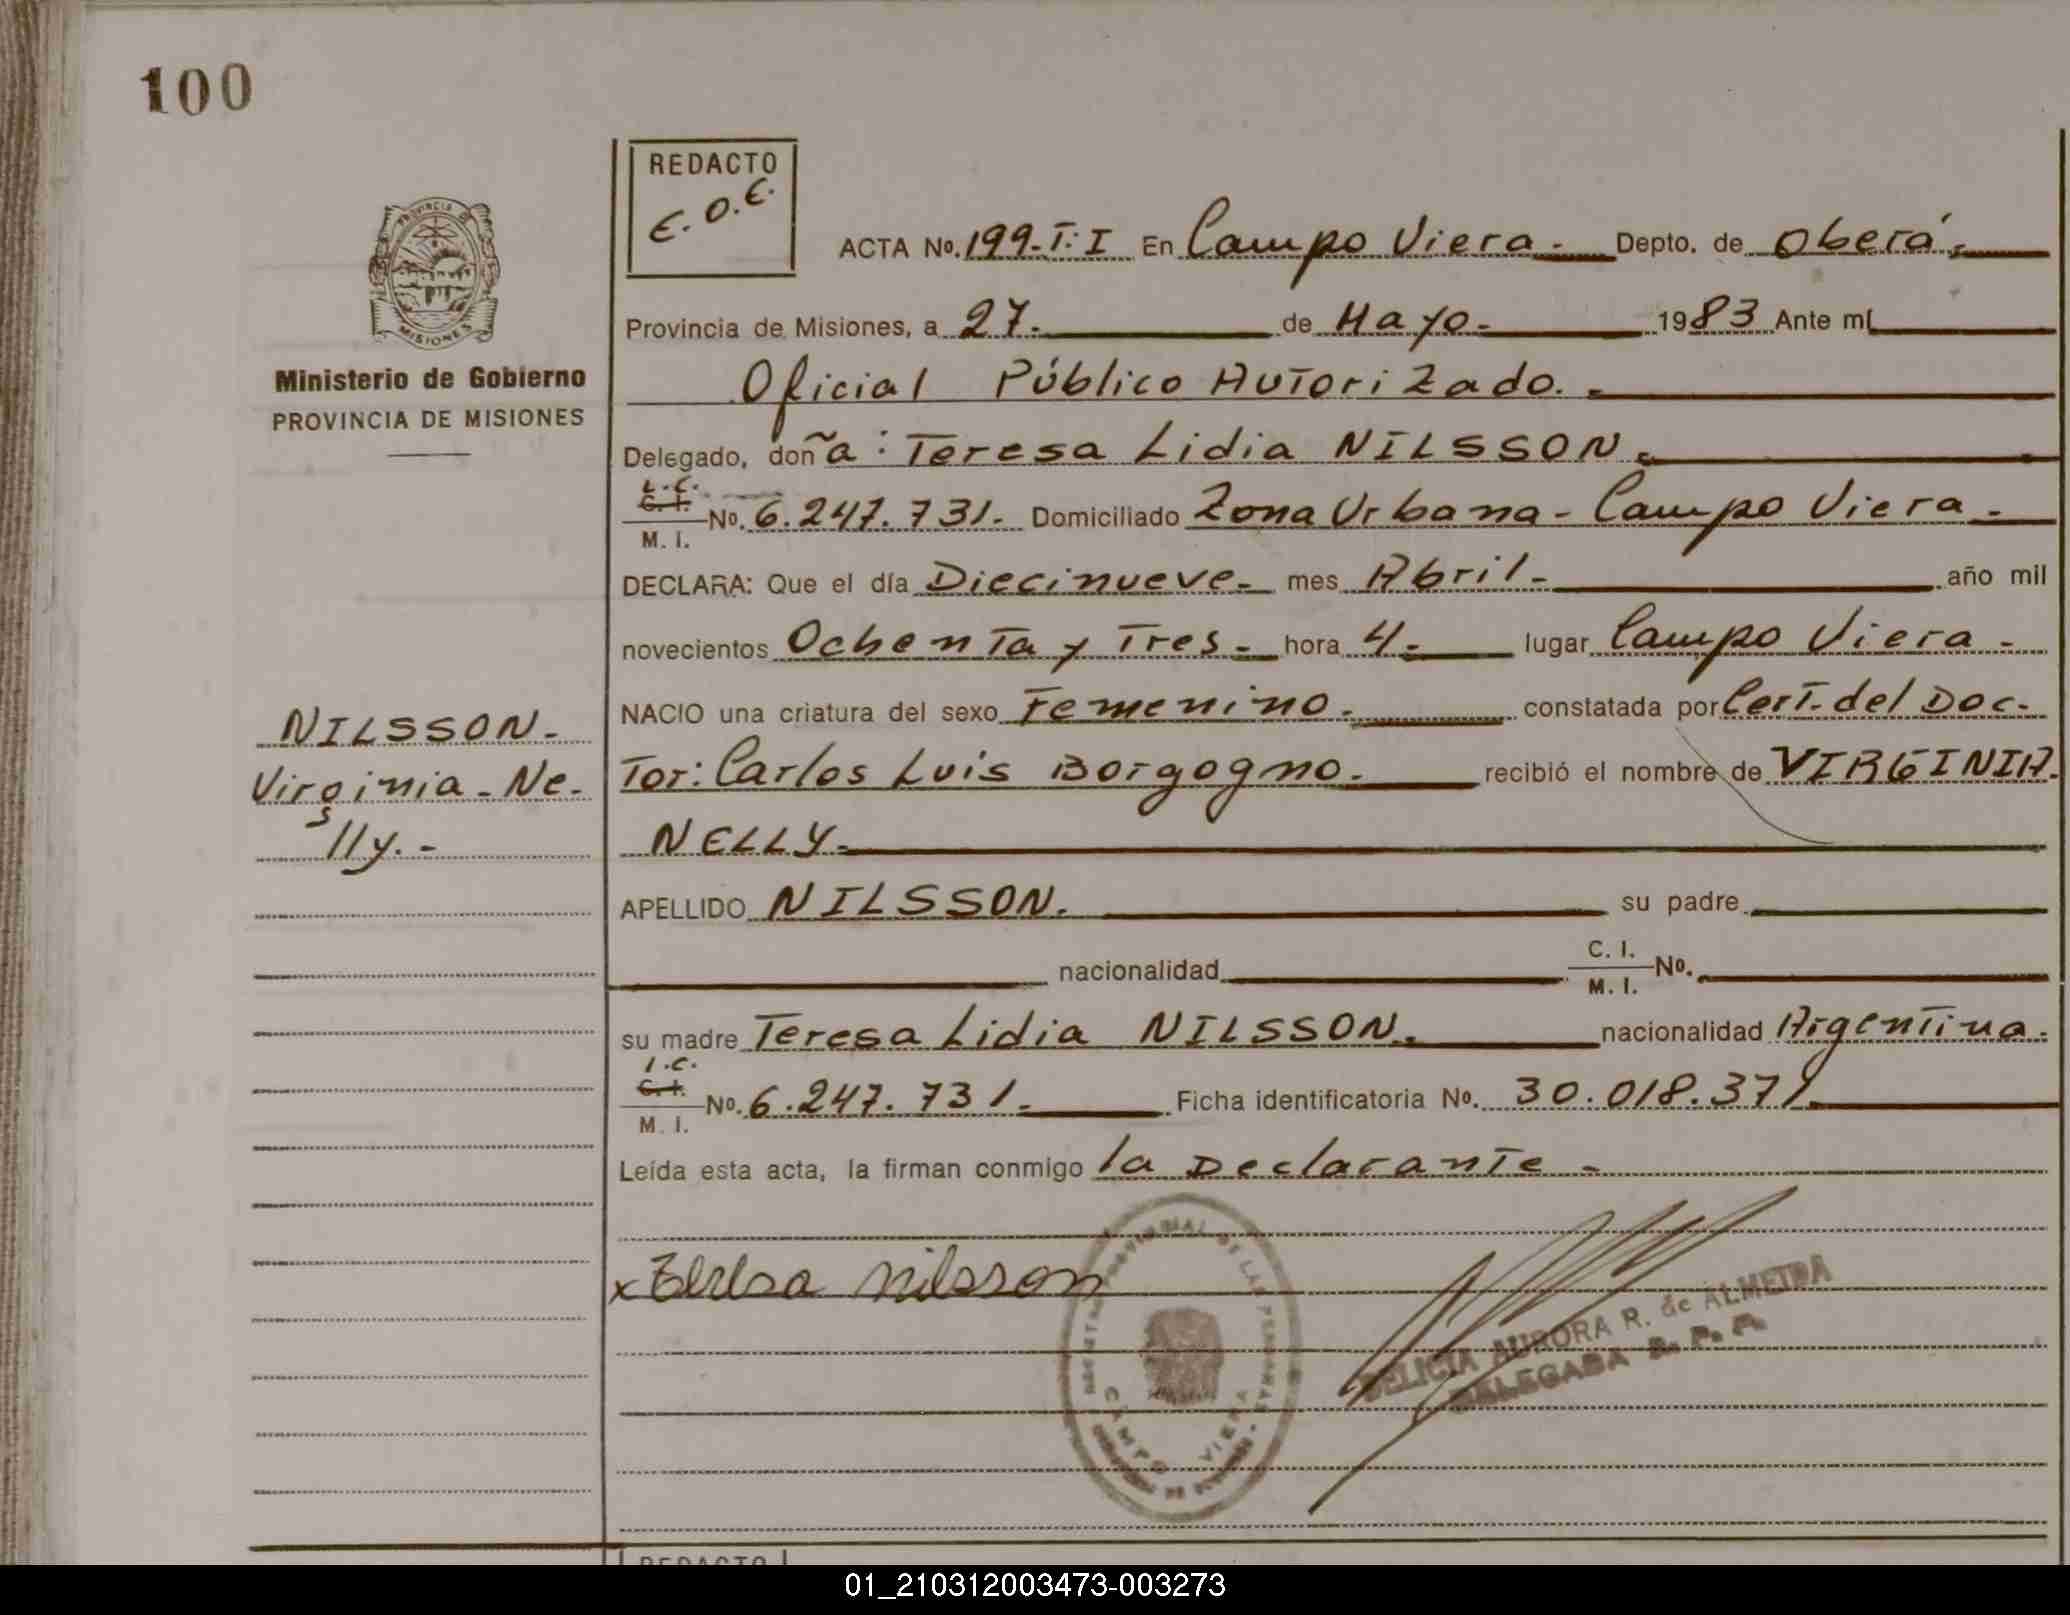 100
REDACTO
E.O.E.
PROVINCIA DE
MISIONES
Ministerio de Gobierno
PROVINCIA DE MISIONES
ACTA No. 199-T:I En Campo Viera.- Depto. de Oberá.-
Provincia de Misiones, a 27.- de Mayo.- 1983 Ante mí
Oficial Público Autorizado.-
Delegado, doña: Teresa Lidia NILSSON.
L.C.
C. I.
No. 6.247.731.- Domiciliado Zona Urbana - Campo Viera.-
M. I.
DECLARA: Que el día Diecinueve.- mes Abril.- año mil
novecientos Ochenta y Tres.- hora 4.- lugar Campo Viera.-
NACIO una criatura del sexo Femenino.- constatada por Cert. del Doc-
tor: Carlos Luis Borgogno.- recibió el nombre de VIRGINIA.
NELLY.-
NILSSON.-
Virginia - Ne-
lly.-
APELLIDO NILSSON. su padre
nacionalidad C. I. No.
M. I.
su madre Teresa Lidia NILSSON. nacionalidad Argentina.
L.C.
C. I.
No. 6.247.731.- Ficha identificatoria No. 30.018.371
M. I.
Leída esta acta, la firman conmigo la Declarante.-
x Teresa Nilsson
PROVINCIAL DE LAS PERSONAS
CAMPO VIERA
DELICIA AURORA R. de ALMEIDA
DELEGADA R. P. P.
REDACTO
01_210312003473-003273